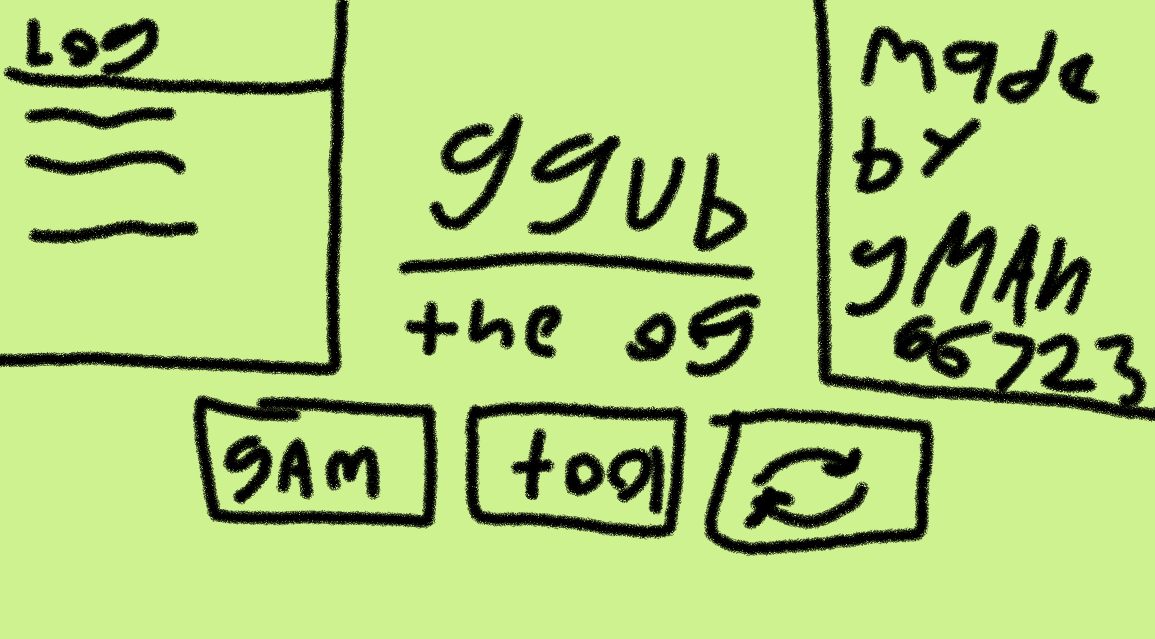 Log
ggub
the og
made
by
yMAn
66723
gAm
tool